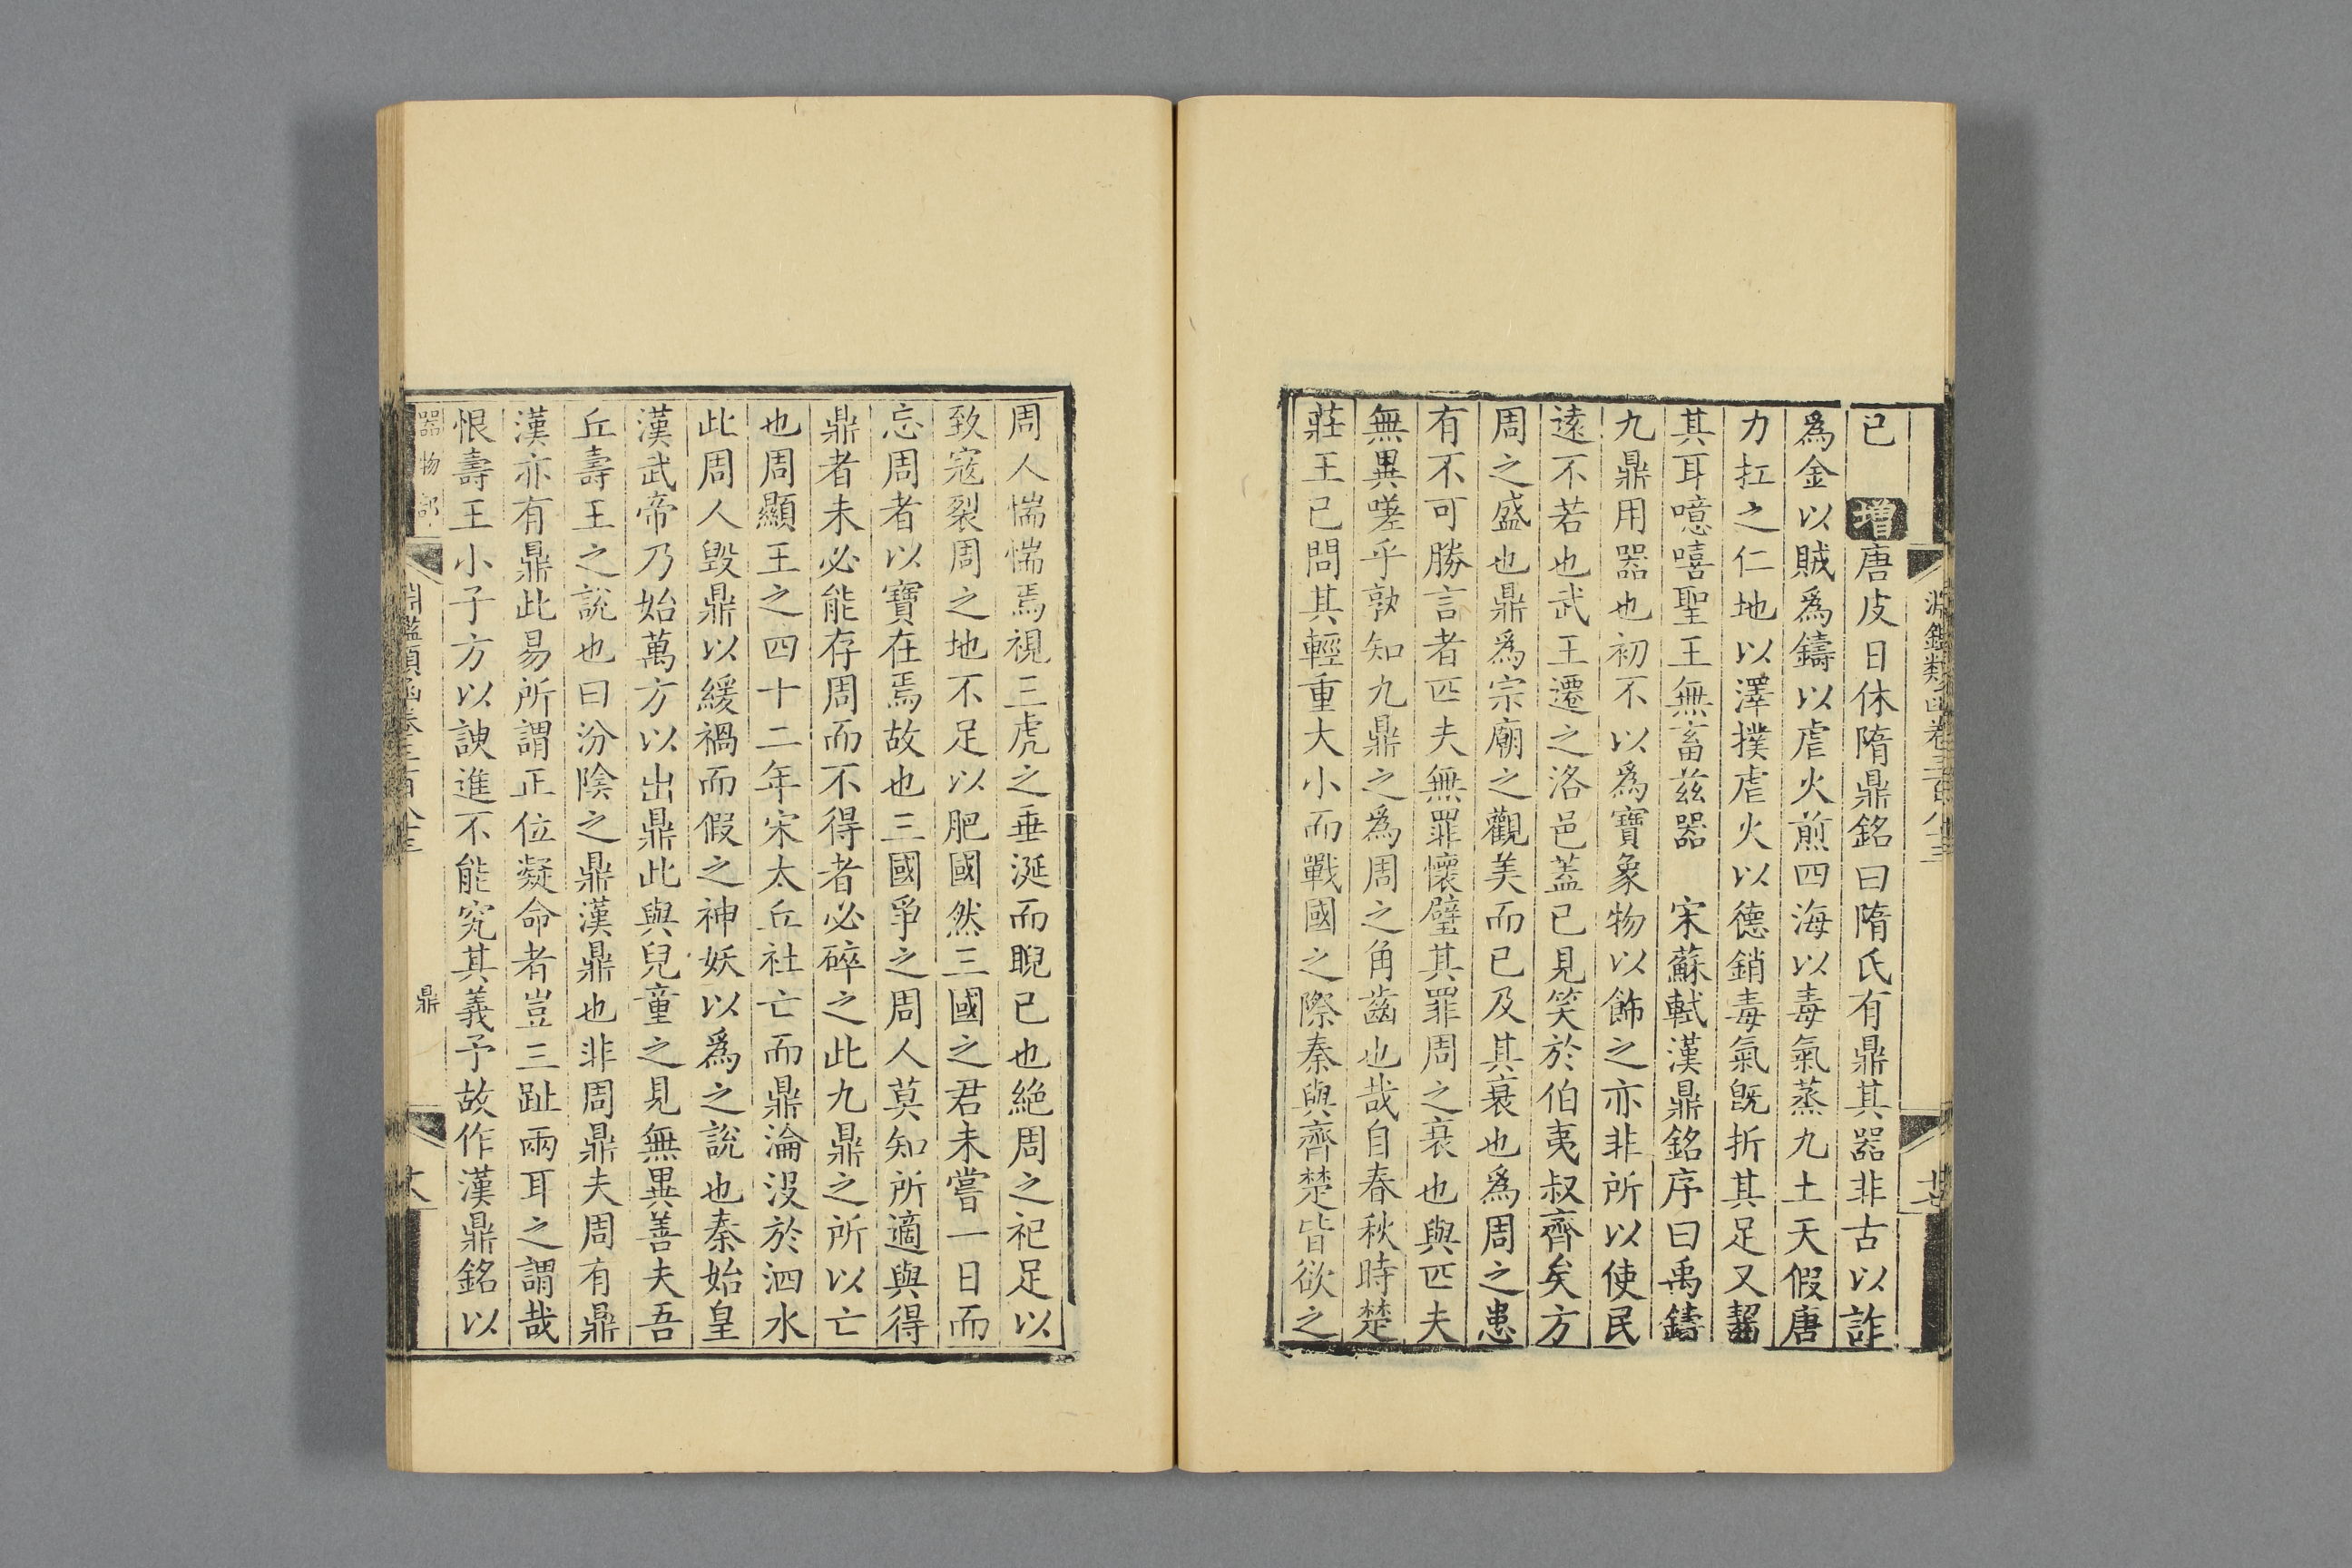 已 增唐皮日休隋鼎銘曰隋氏有鼎其器非古以詐
爲金以賊爲鑄以虐火煎四海以毒氣蒸九土天假唐
力扛之仁地以澤撲虐火以德銷毒氣旣折其足又齧
其耳噫嘻聖王無畜茲器 宋蘇軾漢鼎銘序曰禹鑄
九鼎用器也初不以爲寶象物以飾之亦非所以使民
遠不若也武王遷之洛邑蓋已見笑於伯夷叔齊矣方
周之盛也鼎爲宗廟之觀美而已及其衰也爲周之患
有不可勝言者匹夫無罪懷璧其罪周之衰也與匹夫
無異嗟乎孰知九鼎之爲周之角齒也哉自春秋時楚
莊王已問其輕重大小而戰國之際秦與齊楚皆欲之
周人惴惴焉視三虎之垂涎而睨已也絕周之祀足以
致寇裂周之地不足以肥國然三國之君未嘗一日而
忘周者以寶在焉故也三國爭之周人莫知所適與得
鼎者未必能存周而不得者必碎之此九鼎之所以亡
也周顯王之四十二年宋太丘社亡而鼎淪沒於泗水
此周人毀鼎以緩禍而假之神妖以爲之說也秦始皇
漢武帝乃始萬方以出鼎此與兒童之見無異善夫吾
丘壽王之說也曰汾陰之鼎漢鼎也非周鼎夫周有鼎
漢亦有鼎此易所謂正位凝命者豈三趾兩耳之謂哉
恨壽王小子方以諛進不能究其義予故作漢鼎銘以
器物部 淵鑑類函卷三百八十三 鼎